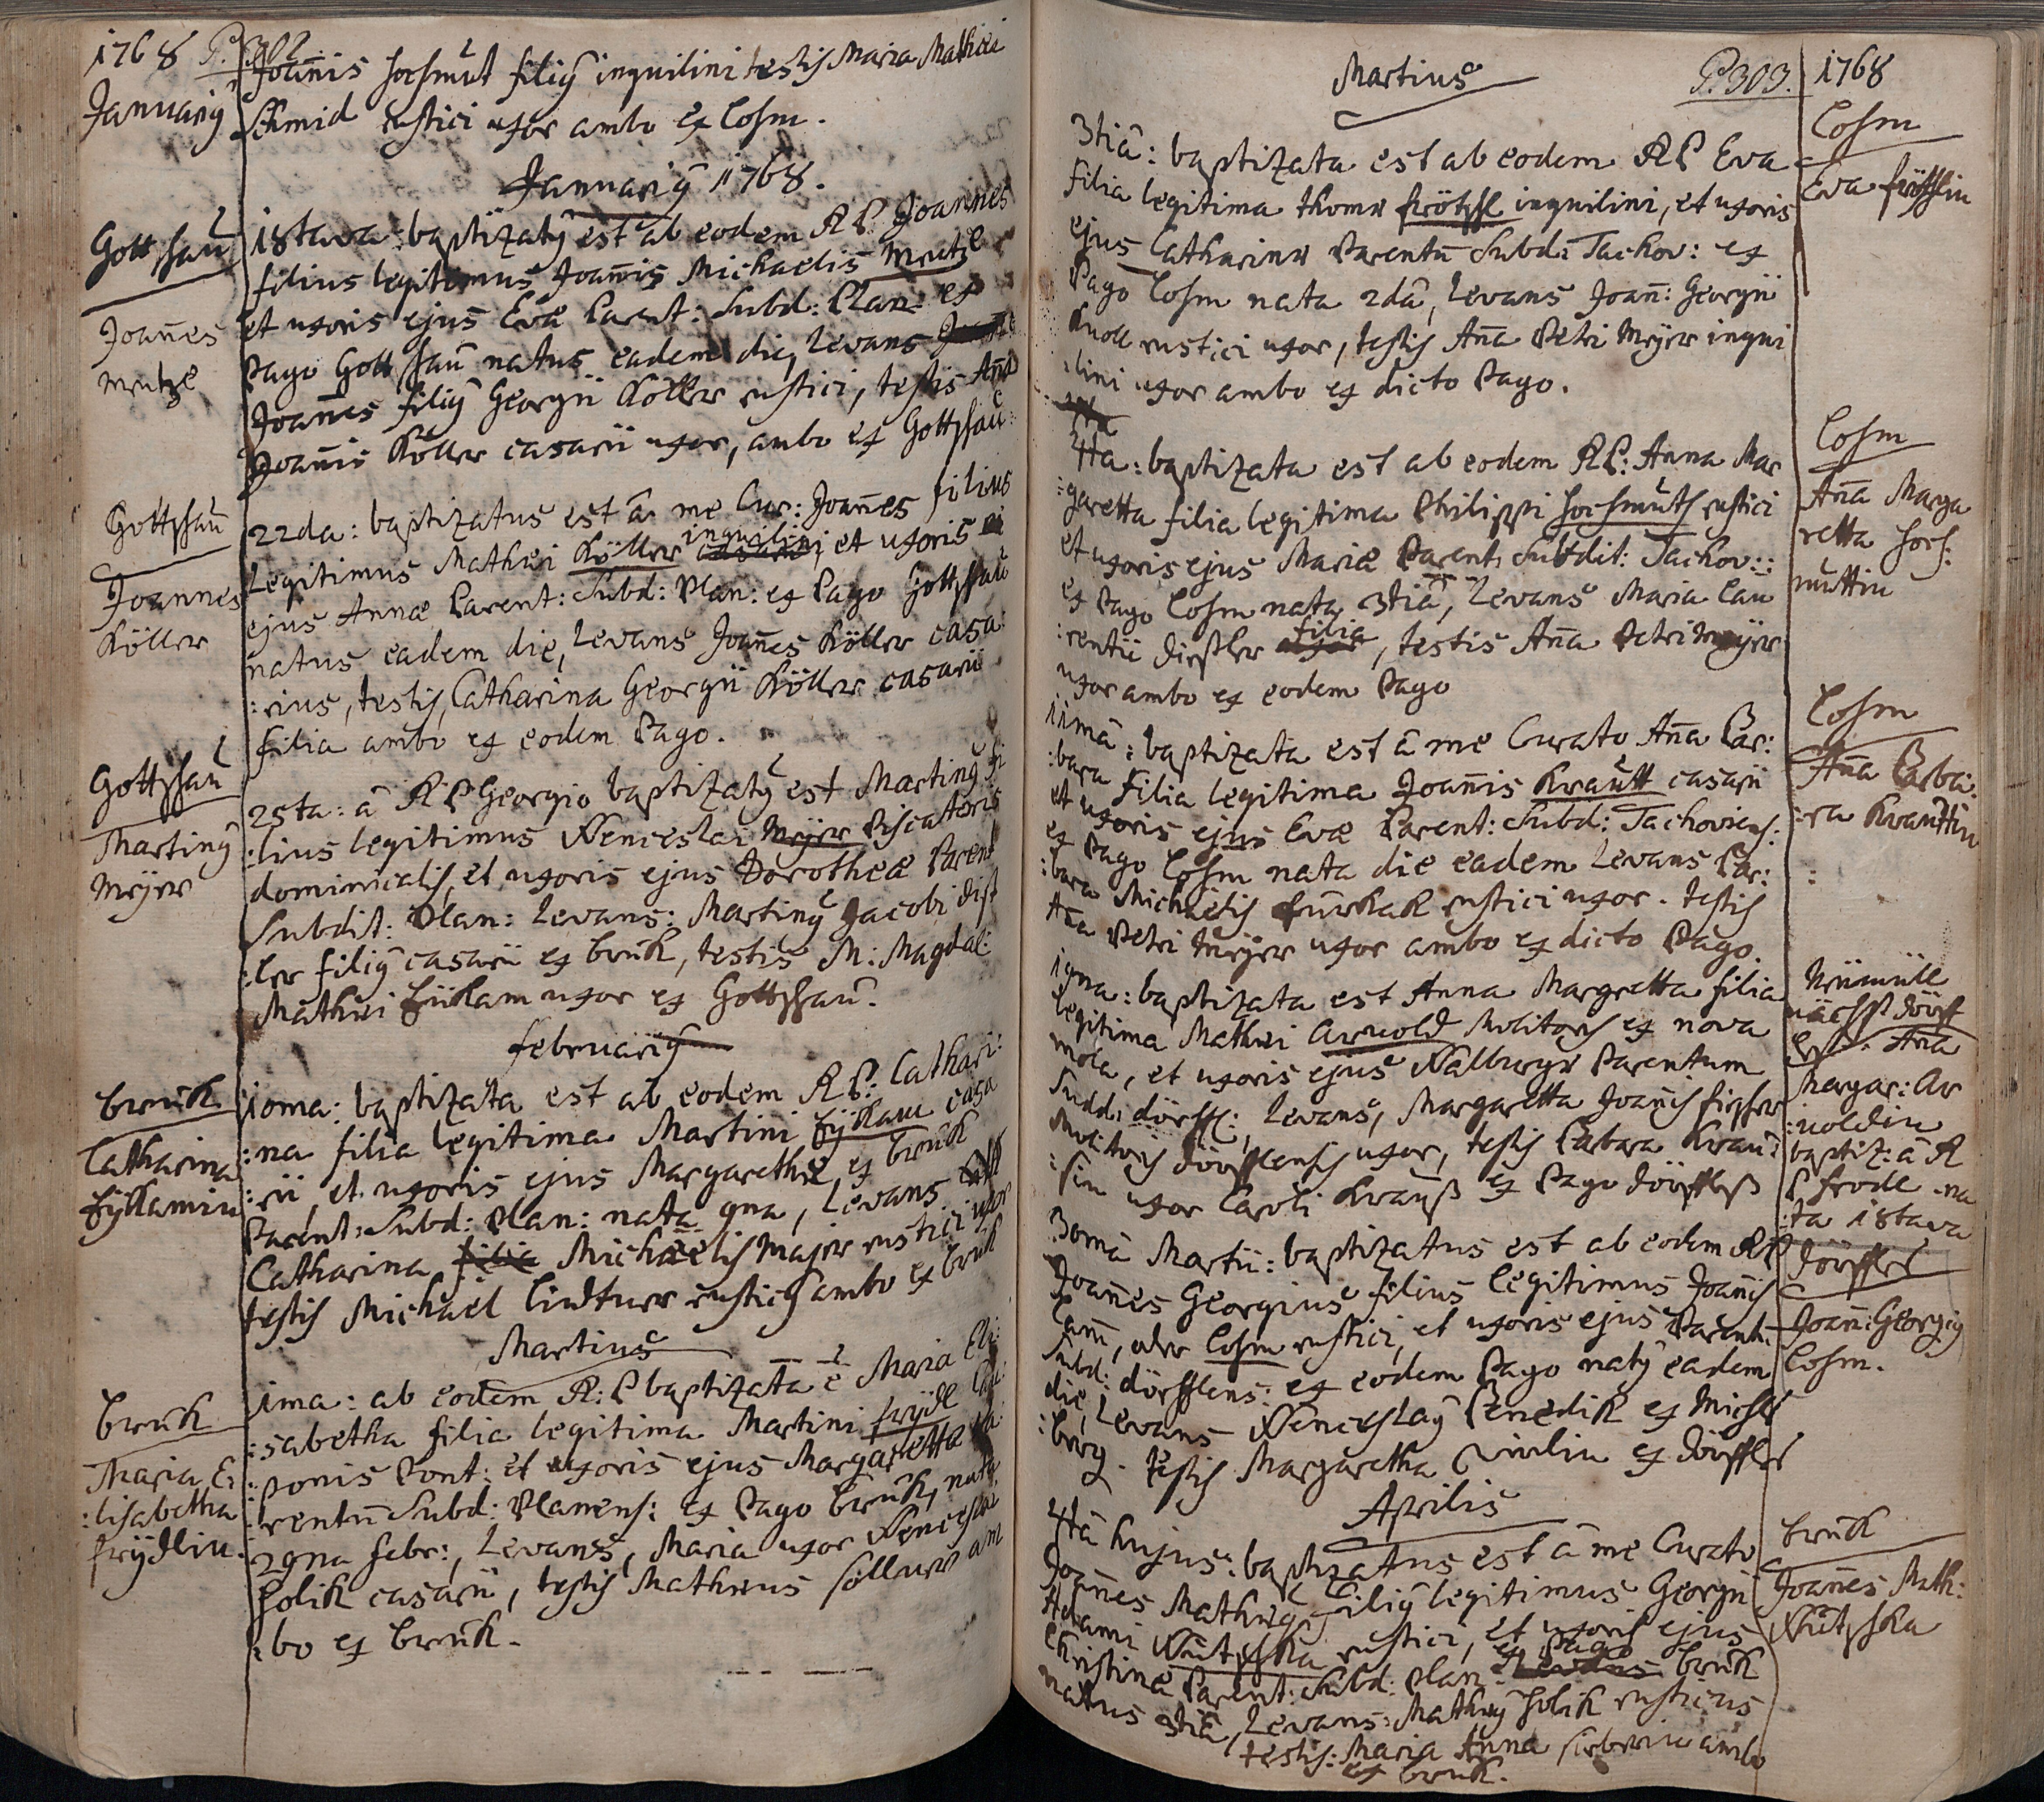 1768 P. 302
Januarÿ
Joañis hochmut filiÿ inquilini testis Maria Mathiæ
Schmid rustici uxor ambo ex Cosm.
Januarÿ 1768.
Gottschau
Joañes
Mutzl
18tava: baptizatÿ est ab eodem R P Joannes
filius legitimus Joañis Michaelis Mutzl
et uxoris ejus Evæ Parent: Subd: Plan: ex
Pago Gottschau natus eadem die, Levans
Joañes filiÿ Georgii Köller rustici, testis Aña
Joañis Köller casarii uxor, ambo ex Gottschau
Gottschau
Joannes
Köller
22da: baptizatus est â me Cur: Joañes filius
Legitimus Mathæi Köller inquilini et uxoris
ejus Annæ Parent: Subd: Plan: ex Pago Gottschau
natus eadem die, Levans Joañes Köller casa
:rius, testis, Catharina Georgii Köller casarii
filia ambo ex eodem Pago.
Gottschau
Martinÿ
Meÿer
25ta: â R P Georgio baptizatÿ est Martinÿ fi
:lius legitimus Wenceslai Meÿer Piscatoris
dominicalis, et uxoris ejus Dorotheæ Parent
Subdit: Plan: Levans: Martinÿ Jacobi Dist
:ler filiÿ casarii ex bruk, testis M: Magdal:
Mathæi fükam uxor ex Gottschau.
februariÿ
bruck
Catharina
fÿkamin
10ma: baptizata est ab eodem R P: Cathari:
:na filia legitima Martini fÿkam casa
:rii, et uxoris ejus Margarethæ, ex bruk
Parent: Subd: Plan: nata 9na, Levans
Catharina filia Michaelis Majer rustici uxor
testis Michael Lindtner rusticÿ ambo ex bruk
Martius
bruck
Maria E:
:lisabetha
frÿdlin.
1ma: ab eodem R: P baptizata ē Maria Eli:
:sabetha filia legitima Martini frÿdl
:ponis Pont: et uxoris ejus Margaretta Pa
:rentū Subd: Planens: ex Pago bruk, nata
29na febr:, Levans, Maria uxor Wenceslai
holik casarii, testis Mathæus söllner am
:bo ex bruk.
Martius P. 303. 1768
Cosm
Eva frötschlin
3tiâ: baptizata est ab eodem R P Eva
filia legitima thomæ frötschl inquilini, et uxoris
ejus Catharinæ Parentū Subd: Tachov: ex
Pago Cosm nata 2dâ, Levans Joañ: Georgii
Knoll rustici uxor, testis Aña Petri Meÿer inqui
:lini uxor ambo ex dicto Pago.
Cosm
Aña Marga
retta hoch:
muttin
4ta: baptizata est ab eodem R P: Anna Mar
:garetta filia legitima Philippi hochmuth rustici
et uxoris ejus Mariæ Parent: Subdit: Tachov::
ex Pago Cosm nata 3tiâ, Levans Maria Lau
:rentii Distler filia, testis Aña Petri Meÿer
uxor ambo ex eodem Pago
Cosm
Aña Barba:
:ra Krauttin
11mâ: baptizata est â me Curato Aña Bar:
:bara filia legitima Joañis Krautt casarii
et uxoris ejus Evæ Parent: Subd: Tachoviens:
ex Pago Cosm nata die eadem Levans Bar:
:bara Michaelis rustici uxor. testis
Aña Petri Meÿer uxor ambo ex dicto Pago.
Neümüll
nächst Dörff
Aña
Margar: Ar
:noldin
baptiz: â R
P frode na
:ta 18tava
19na: baptizata est Anna Margretta filia
legitima Mathæi Arnold Molitoris ex nova
mola, et uxoris ejus Walburgæ Parentum
Subd: dörffl:, Levans, Margaretta Joañis fischer
Molitoris dörfflensis uxor, testis Barbara Krau:
:sin uxor Caroli Krauß ex Pago Dörffles
Dörffles
Joañ: Georgiÿ
Cosm.
30mâ Martii: baptizatus est ab eodem R P
Joañes Georgius filius legitimus Joañis
Lam, oder Cosm rustici, et uxoris ejus Parent:
Subd: dörfflens: ex eodem Pago natÿ eadem
die, Levans Wenceslaÿ Benedik ex Michls
:berg. testis Margaretha ex Dörffles
Aprilis
bruck
Joañes Math:
Wutschka
4tâ hujus: baptizatus est â me Curato
Joañes Mathiæ filiÿ legitimus Georgii
Adami Wutschka rustici, et uxoris ejus
Christinæ Parent: Subd: Plan: ex Pago bruk
natus 3tiâ, Levans: Mathæÿ holik rusticus
testis: Maria Anna sieberin ambo
ex bruk.